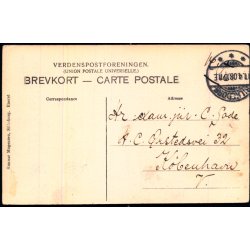 VERDENSPOSTFORENINGEN.
(UNION POSTALE UNIVERSELLE.)
BREVKORT — CARTE POSTALE
Correspondance
Adresse
Hr exam jur. C. Bode
H. C. Ørstedsvei 32
København
V.